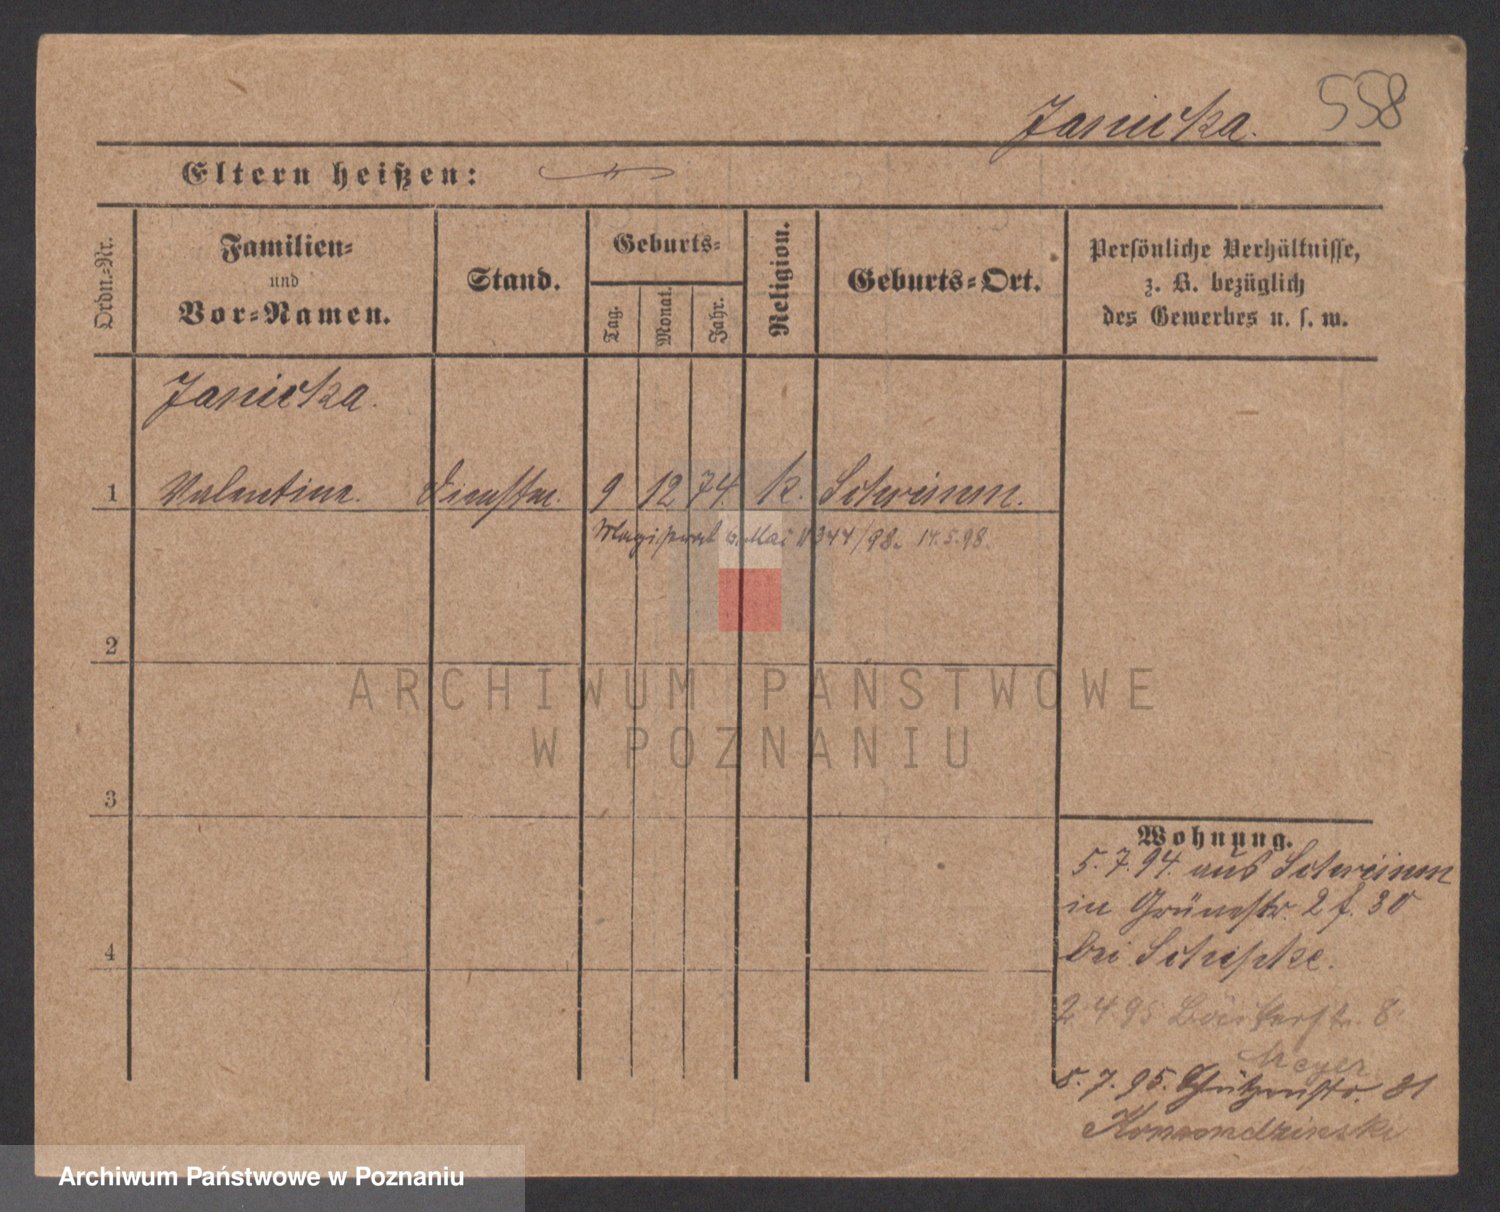 558
Janicka.
Eltern heißen:
Ordn.-Nr.
Familien-
und
Vor-Namen.
Stand.
Geburts-
Tag.
Monat.
Jahr.
Religion.
Geburts-Ort.
Persönliche Verhältnisse,
z. B. bezüglich
des Gewerbes u. s. w.
Janicka.
1 Valentine. Dienstm. 9 12 74. k. Schrimm.
Magistrat 6. Mai 344/98. 14.5.98.
2
ARCHIWUM PAŃSTWOWE
W POZNANIU
3
4
Wohnung.
5.7.94. aus Schrimm
in Grünestr. 2 f. 30
bei
2 4 95 8
Meyer
5. 7. 95. Schützenstr. 31
Archiwum Państwowe w Poznaniu